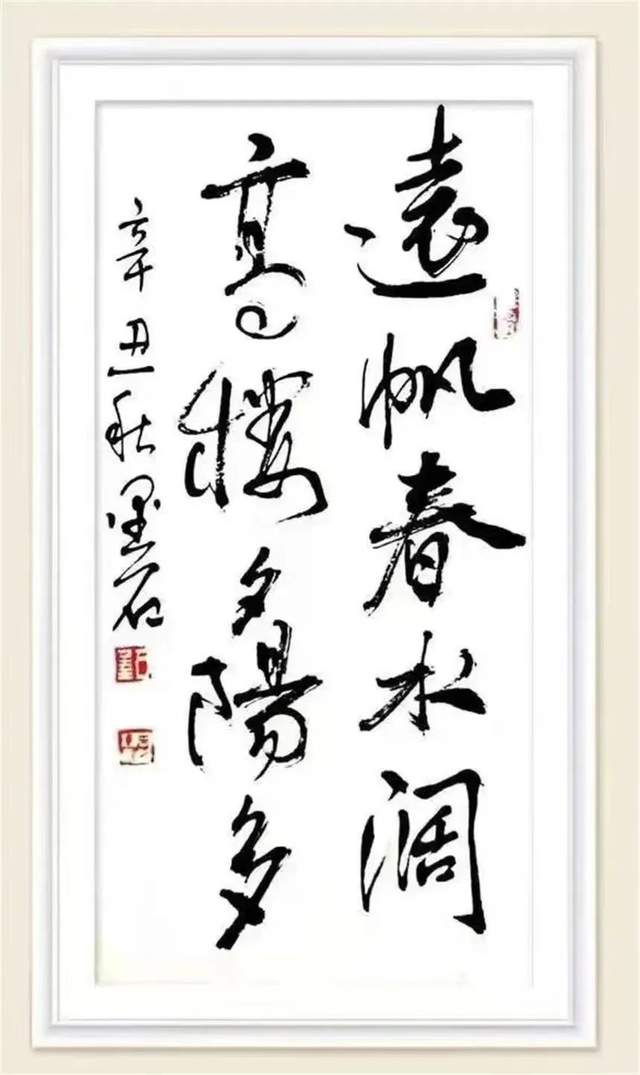 遠帆春水阔
高樓夕陽多
辛丑秋墨石